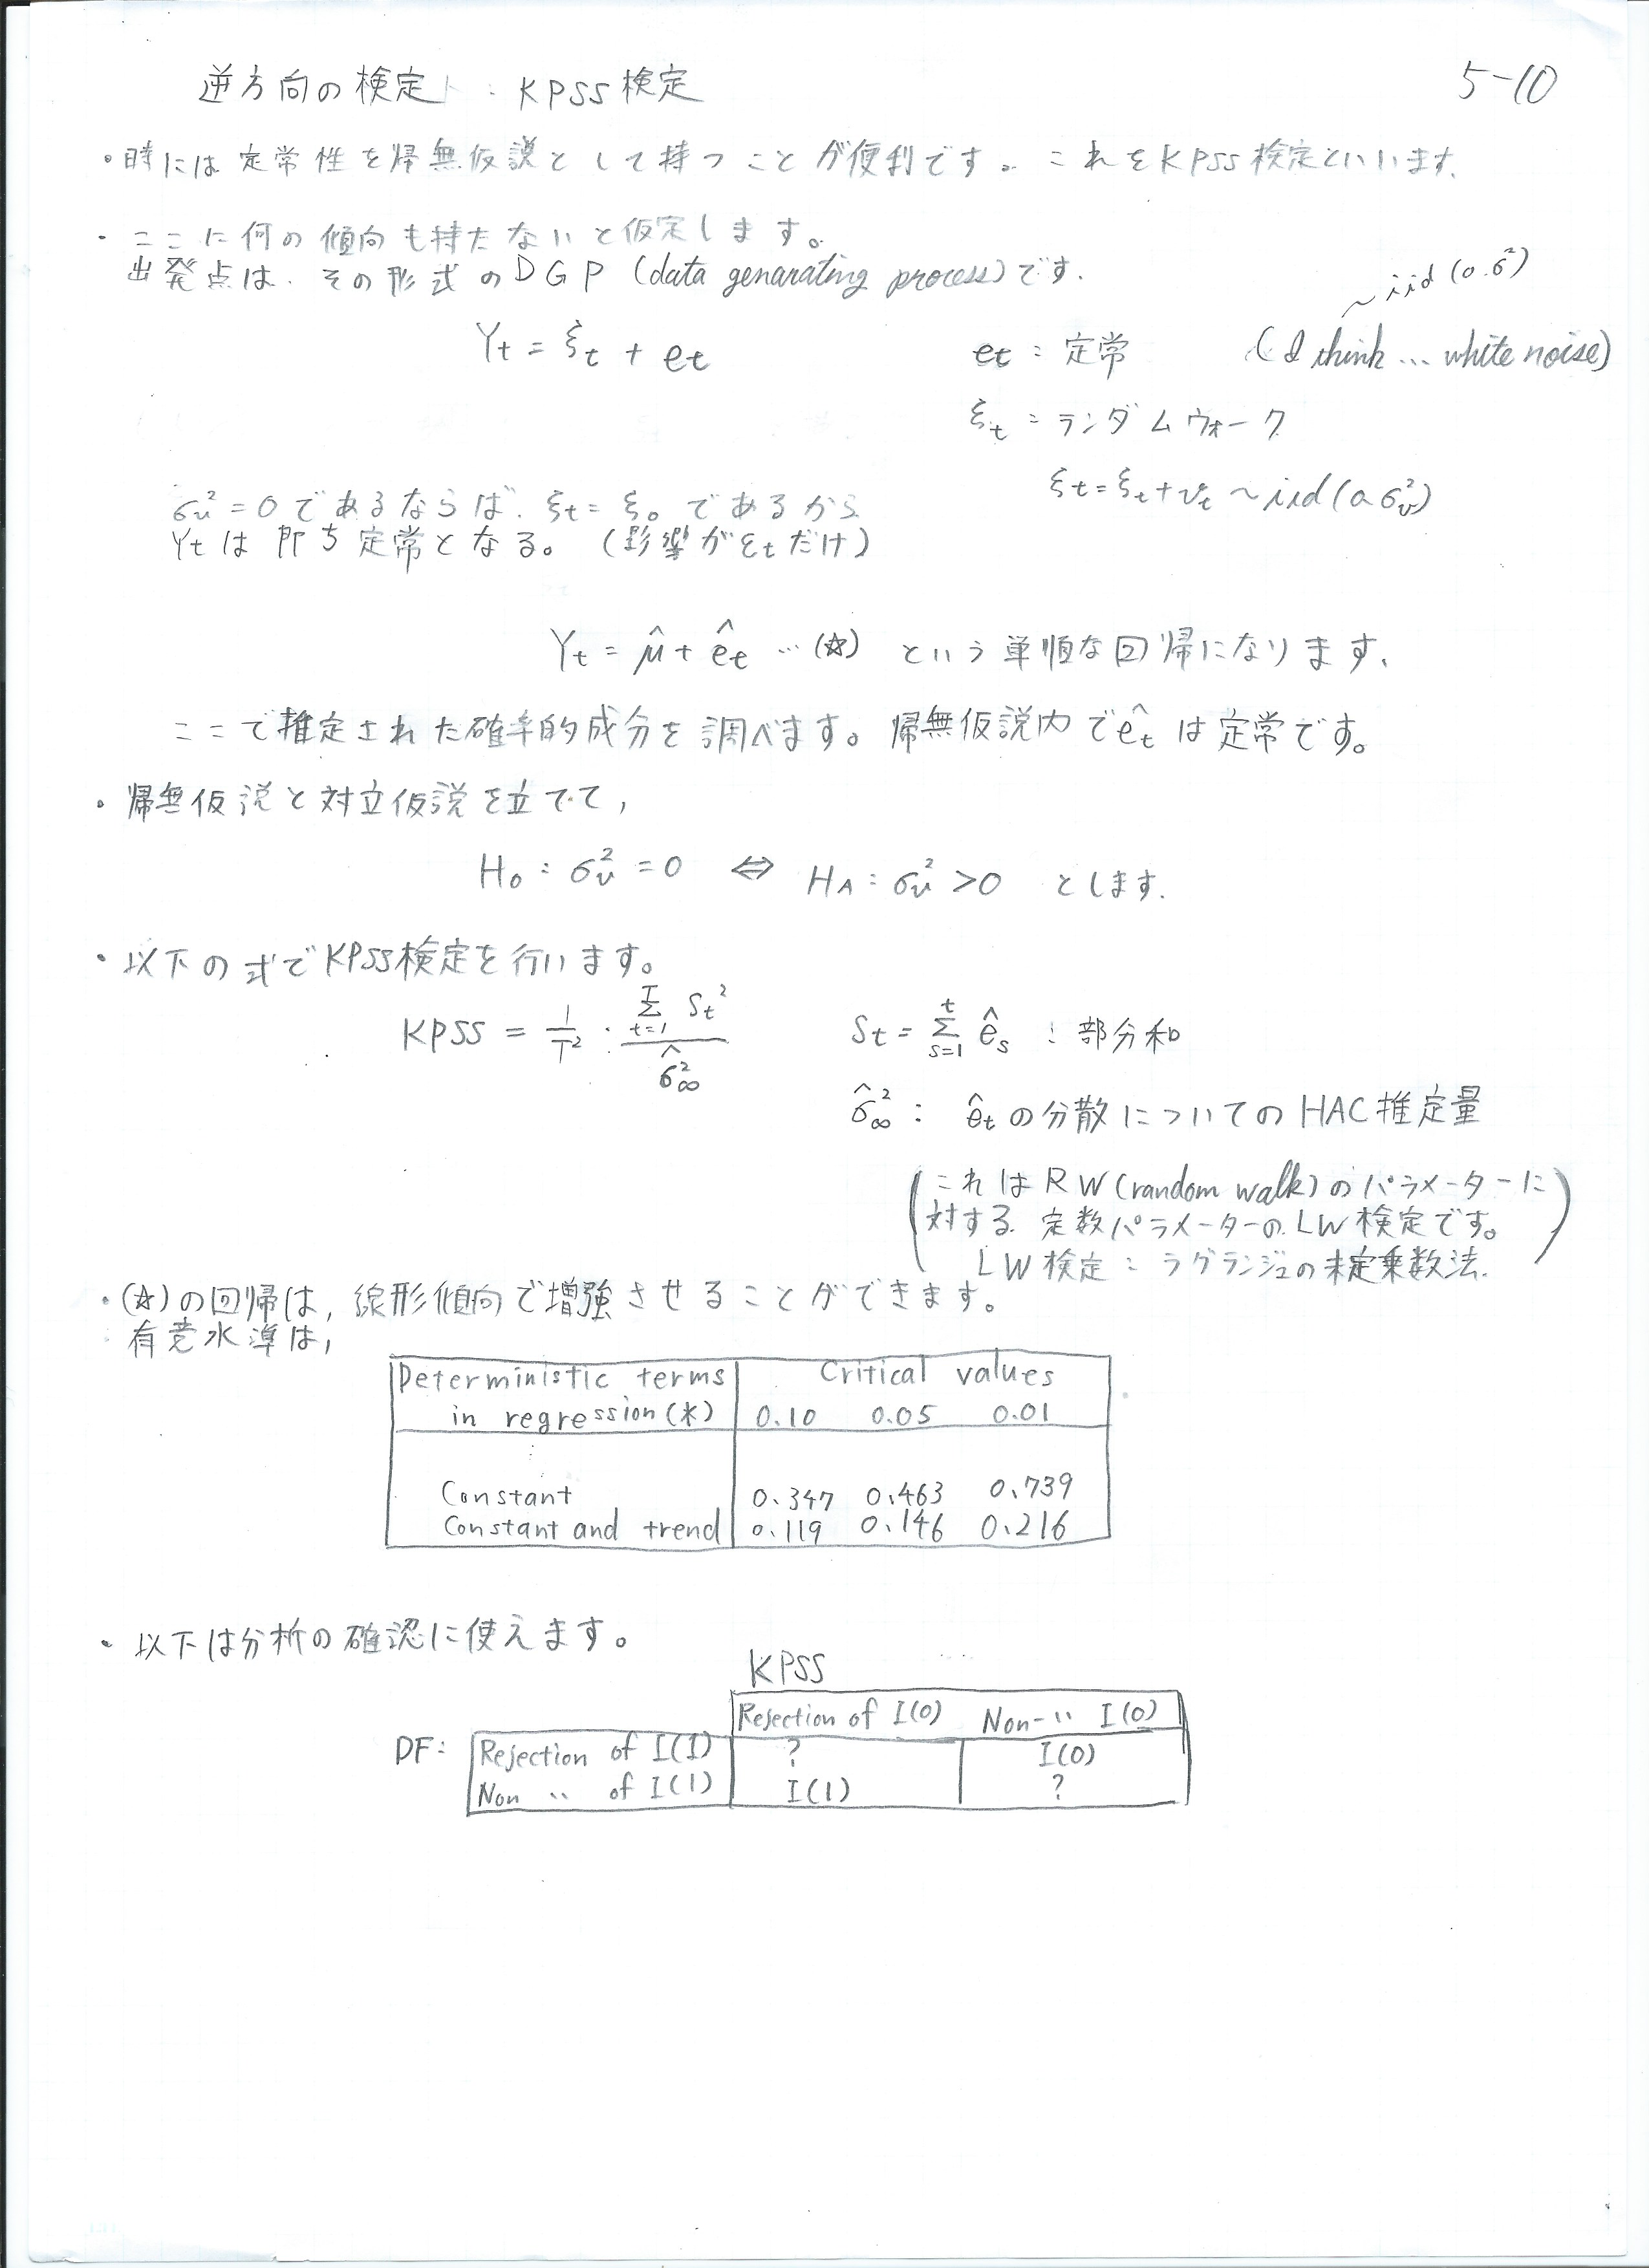 逆方向の検定 : KPSS検定
5-10
・時には定常性を帰無仮説として持つことが便利です。これをKPSS検定といいます.
・ここに何の傾向も持たないと仮定します。
出発点は、その形式のDGP (data genarating process)です.
~ iid (0.σ²)
Yt = ξt + et
et : 定常 (I think ... white noise)
ξt : ランダムウォーク
ξt = ξt + vt ~ iid (0 σv²)
σv² = 0 であるならば、ξt = ξ0 であるから
Ytは即ち定常となる。(影響がεtだけ)
Yt = μ̂ + êt …(☆) という単順な回帰になります.
ここで推定された確率的成分を調べます。帰無仮説内でêtは定常です。
・帰無仮説と対立仮説を立てて,
H0 : σv² = 0 ⇔ HA : σv² > 0 とします.
・以下の式でKPSS検定を行います。
KPSS = 1/T² · Σ(t=1→T) St² / σ̂∞²
St = Σ(s=1→t) ês : 部分和
σ̂∞² : êtの分散についてのHAC推定量
(これはRW(random walk)のパラメーターに
対する定数パラメーターのLW検定です。
LW検定 : ラグランジュの未定乗数法.)
・(☆)の回帰は, 線形傾向で増強させることができます。
有意水準は,
Deterministic terms Critical values
in regression(*) 0.10 0.05 0.01
Constant 0.347 0.463 0.739
Constant and trend 0.119 0.146 0.216
・以下は分析の確認に使えます。
KPSS
Rejection of I(0) Non-〃 I(0)
DF: Rejection of I(1) ? I(0)
Non 〃 of I(1) I(1) ?